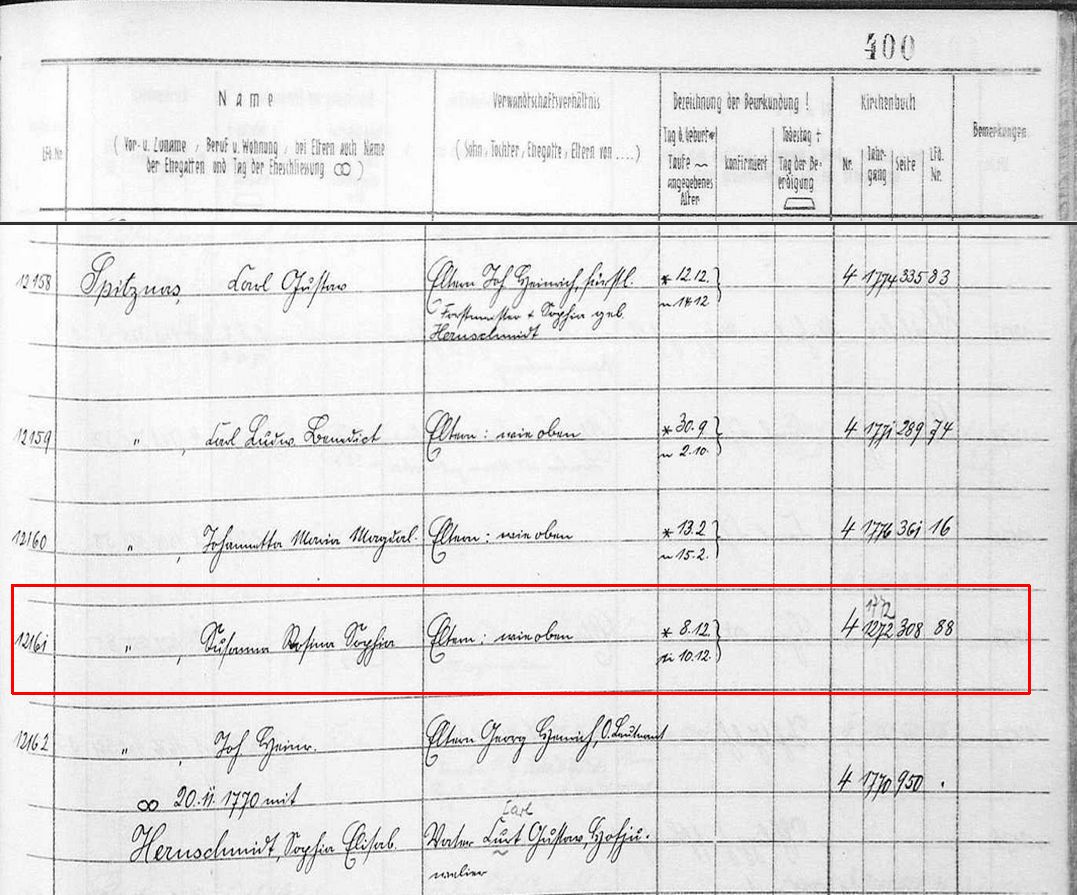 400
Name
(Vor- u. Zuname, Beruf u. Wohnung, bei Eltern auch Name
der Ehegatten und Tag der Eheschliessung ∞)
Lfd. Nr.
Verwandtschaftsverhältnis
(Sohn, Tochter, Ehegatte, Eltern von ....)
Bezeichnung der Beurkundung!
Tag d. Geburt *
Taufe ~
angegebenes
Alter
konfirmiert
Todestag +
Tag der Be-
erdigung
Kirchenbuch
Nr.
Jahr-
gang
Seite
Lfd.
Nr.
Bemerkungen
12158 Spitznas, Carl Gustav Eltern Joh Heinrich, fürstl. * 12.12. 4 1774 335 83
Forstmeister + Sophia geb.
Hernschmidt
12159 " , Carl Ludw. Benedict Eltern: wie oben * 30.9. 4 1771 289 74
~ 2.10.
12160 " , Johannetta Maria Magdal. Eltern: wie oben * 13.2. 4 1776 361 16
~ 15.2.
1772
12161 " , Susanna Rosina Sophia Eltern: wie oben * 8.12. 4 1272 308 88
~ 10.12.
12162 " , Joh Heinr. Eltern Georg Heinrich, O. Leutnant
∞ 20.11.1770 mit 4 1770 950 .
Carl
Hernschmidt, Sophia Elisab. Vater Curt Gustav, Hofju-
welier